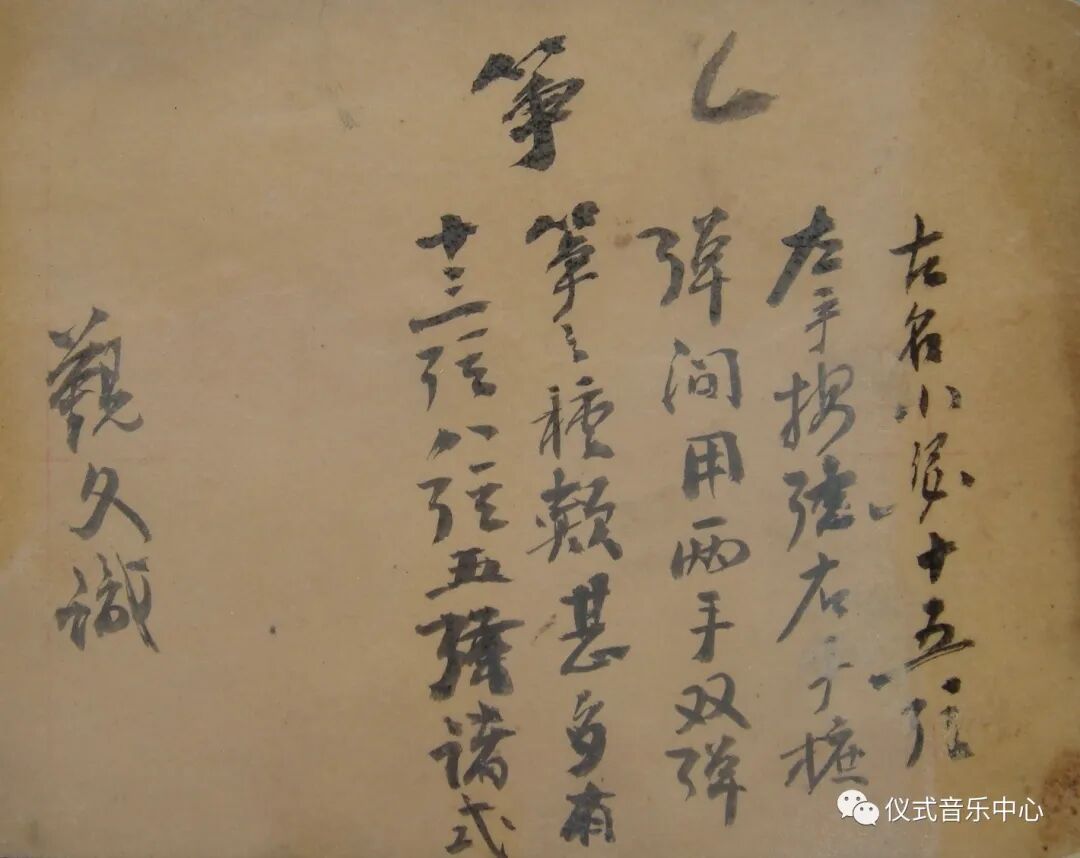 筝
古名小十五弦
左手按弦右手
弹间用两手双弹
筝之種類甚多有
十三弦八弦五弦諸式
觀久識
仪式音乐中心